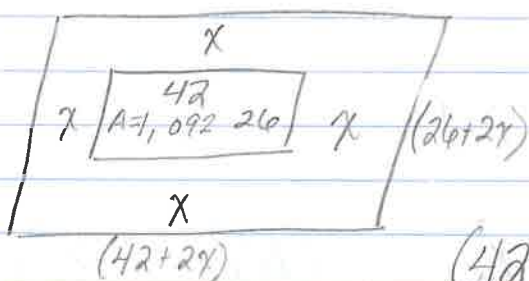 x
42
x A=1,092 26 x (26+2x)
x
(42+2x) (42